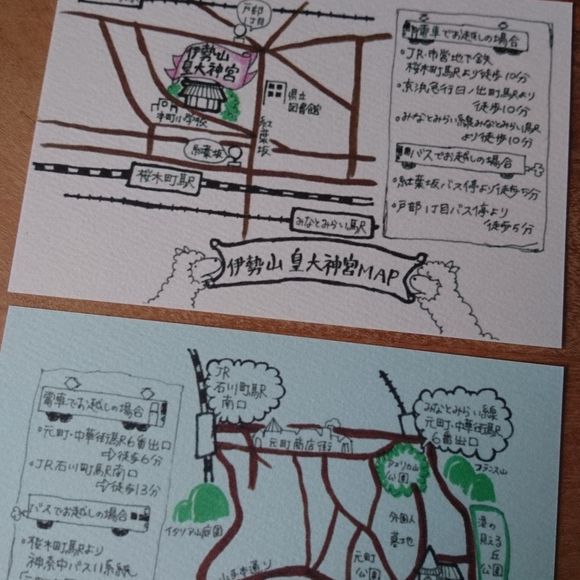 戸部
1丁目
伊勢山
皇大神宮
県立
図書館
本町小学校
紅葉坂
紅葉坂
桜木町駅
みなとみらい駅
伊勢山 皇大神宮MAP
電車でお越しの場合
・JR・市営地下鉄
桜木町駅より徒歩10分
・京浜急行日ノ出町駅より
徒歩10分
・みなとみらい線みなとみらい駅
より徒歩10分
バスでお越しの場合
・紅葉坂バス停より徒歩5分
・戸部1丁目バス停より
徒歩5分
電車でお越しの場合
・元町・中華街駅6番出口
⇨徒歩6分
・JR石川町駅南口
⇨徒歩13分
バスでお越しの場合
・桜木町駅より
神奈中バス11系統
JR
石川町駅
南口
みなとみらい線
元町・中華街駅
6番出口
元町商店街
アメリカ山
公園
フランス山
イタリア山庭園
外国人
墓地
港の
見える
丘
公園
元町
公園
山手本通り